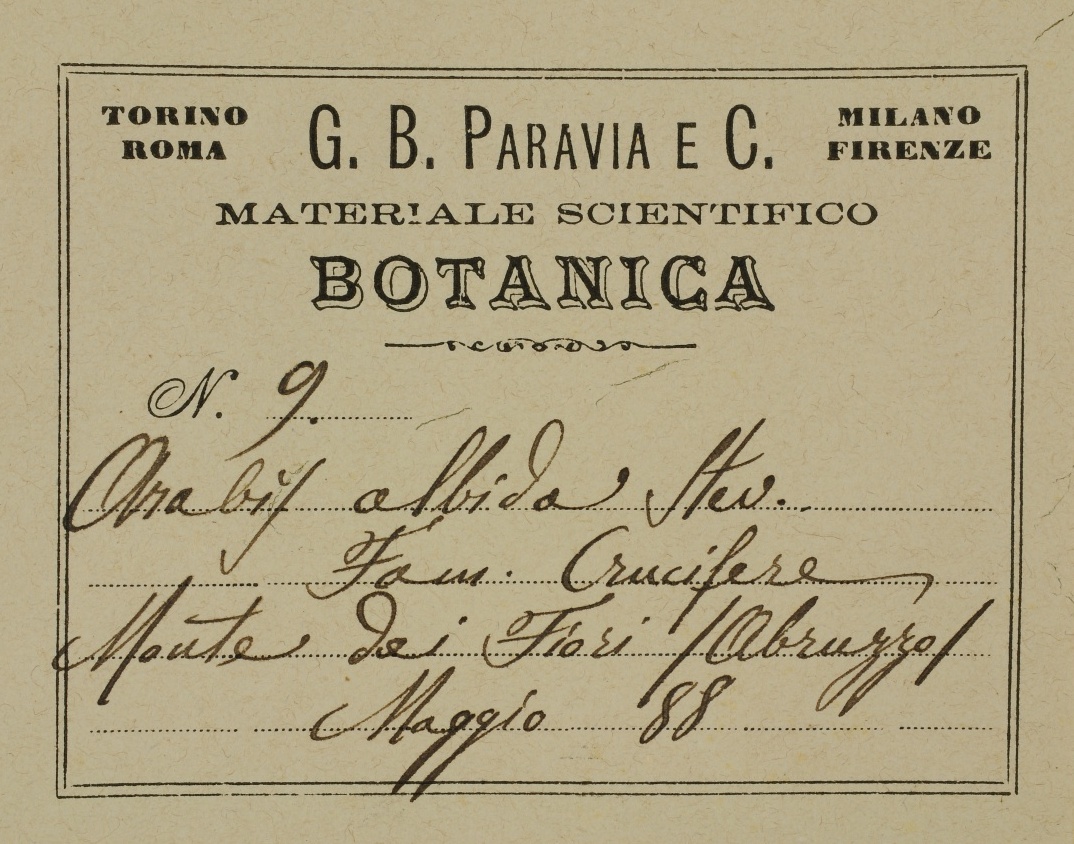 TORINO ROMA
G. B. PARAVIA E C.
MILANO FIRENZE
MATERIALE SCIENTIFICO
BOTANICA
N. 9.
Arabis albida Stev.
Fam. Crucifere
Monte dei Fiori /Abruzzo/
Maggio 88